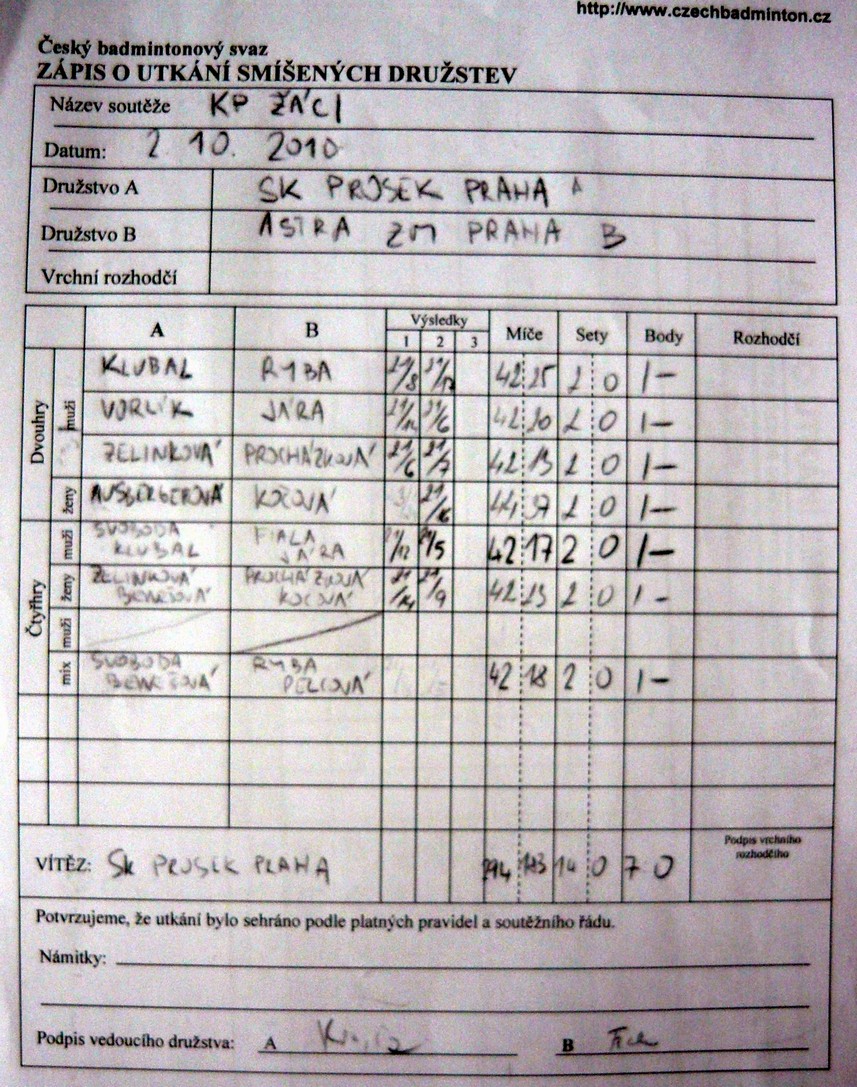 http://www.czechbadminton.cz
Český badmintonový svaz
ZÁPIS O UTKÁNÍ SMÍŠENÝCH DRUŽSTEV
Název soutěže KP ŽÁCI
Datum: 2. 10. 2010
Družstvo A SK PROSEK PRAHA A
Družstvo B ASTRA ZM PRAHA B
Vrchní rozhodčí
A B Výsledky Míče Sety Body Rozhodčí
1 2 3
Dvouhry
muži
KLUBAL RYBA 21/8 21/17 42 25 2 0 1 -
VORLÍK JÁRA 21/6 42 20 2 0 1 -
ZELINKOVÁ PROCHÁZKOVÁ 21/6 21/7 42 13 2 0 1 -
ženy
KOČOVÁ 21/16 2 0 1 -
Čtyřhry
muži
SVOBODA FIALA
KLUBAL JÁRA 21/12 21/5 42 17 2 0 1 -
ženy
ZELINKOVÁ PROCHÁZKOVÁ
BENEŠOVÁ KOČOVÁ 21/14 21/9 42 23 2 0 1 -
muži
mix
SVOBODA RYBA
BENEŠOVÁ PELCOVÁ 42 18 2 0 1 -
VÍTĚZ: SK PROSEK PRAHA 294 14 0 7 0
Podpis vrchního
rozhodčího
Potvrzujeme, že utkání bylo sehráno podle platných pravidel a soutěžního řádu.
Námitky:
Podpis vedoucího družstva: A B